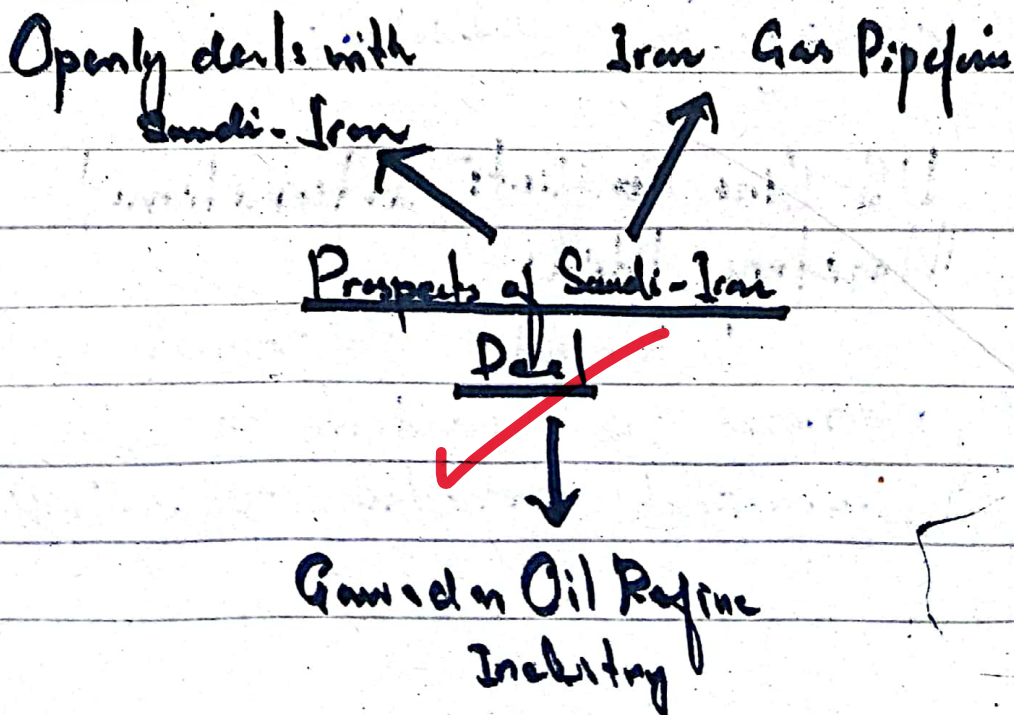 Openly deals with
Saudi-Iran
Iran Gas Pipeline
Prospects of Saudi-Iran
Deal
Gawadar Oil Refine
Industry